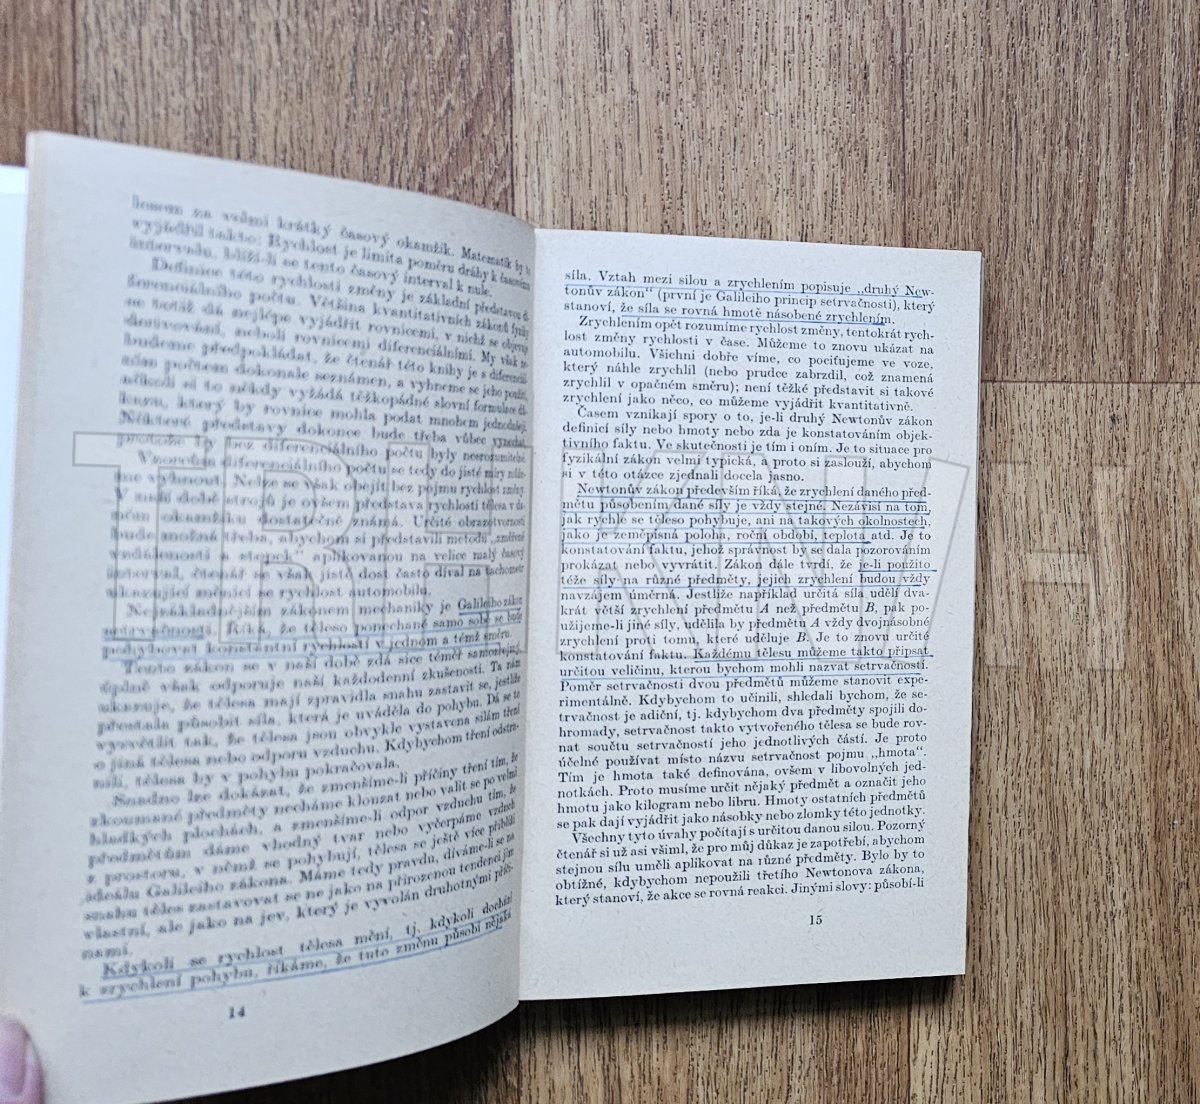 losem za velmi krátký časový okamžik. Matematik by to
vyjádřil takto: Rychlost je limita poměru dráhy k časovému
intervalu, blíží-li se tento časový interval k nule.
Definice této rychlosti změny je základní představou di-
ferenciálního počtu. Většina kvantitativních zákonů fyziky
se totiž dá nejlépe vyjádřit rovnicemi, v nichž se objevuje
derivování, neboli rovnicemi diferenciálními. My však ne-
budeme předpokládat, že čtenář této knihy je s diferenciál-
ním počtem dokonale seznámen, a vyhneme se jeho použití,
ačkoli si to někdy vyžádá těžkopádné slovní formulace dů-
kazu, který by rovnice mohla podat mnohem jednodušeji.
Některé představy dokonce bude třeba vůbec vynechat,
protože by bez diferenciálního počtu byly nesrozumitelné.
Vzorcům diferenciálního počtu se tedy do jisté míry může-
me vyhnout. Nelze se však obejít bez pojmu rychlost změny.
V naší době strojů je ovšem představa rychlosti tělesa v da-
ném okamžiku dostatečně známá. Určité obrazotvornosti
bude možná třeba, abychom si představili metodu „změřené
vzdálenosti a stopek“ aplikovanou na velice malý časový
interval, čtenář se však jistě dost často díval na tachometr
ukazující měnící se rychlost automobilu.
Nejzákladnějším zákonem mechaniky je Galileiho zákon
setrvačnosti. Říká, že těleso ponechané samo sobě se bude
pohybovat konstantní rychlostí v jednom a témž směru.
Tento zákon se v naší době zdá sice téměř samozřejmý,
úplně však odporuje naší každodenní zkušenosti. Ta nám
ukazuje, že tělesa mají zpravidla snahu zastavit se, jestliže
přestala působit síla, která je uváděla do pohybu. Dá se to
vysvětlit tak, že tělesa jsou obvykle vystavena silám tření
o jiná tělesa nebo odporu vzduchu. Kdybychom tření odstra-
nili, tělesa by v pohybu pokračovala.
Snadno lze dokázat, že zmenšíme-li příčiny tření tím, že
zkoumané předměty necháme klouzat nebo valit se po velmi
hladkých plochách, a zmenšíme-li odpor vzduchu tím, že
předmětům dáme vhodný tvar nebo vyčerpáme vzduch
z prostoru, v němž se pohybují, tělesa se ještě více přiblíží
ideálu Galileiho zákona. Máme tedy pravdu, díváme-li se na
snahu těles zastavovat se ne jako na přirozenou tendenci jim
vlastní, ale jako na jev, který je vyvolán druhotnými příči-
nami.
Kdykoli se rychlost tělesa mění, tj. kdykoli dochází
k zrychlení pohybu, říkáme, že tuto změnu působí nějaká
14
síla. Vztah mezi silou a zrychlením popisuje „druhý New-
tonův zákon“ (první je Galileiho princip setrvačnosti), který
stanoví, že síla se rovná hmotě násobené zrychlením.
Zrychlením opět rozumíme rychlost změny, tentokrát rych-
lost změny rychlosti v čase. Můžeme to znovu ukázat na
automobilu. Všichni dobře víme, co pociťujeme ve voze,
který náhle zrychlil (nebo prudce zabrzdil, což znamená
zrychlil v opačném směru); není těžké představit si takové
zrychlení jako něco, co můžeme vyjádřit kvantitativně.
Časem vznikají spory o to, je-li druhý Newtonův zákon
definicí síly nebo hmoty nebo zda je konstatováním objek-
tivního faktu. Ve skutečnosti je tím i oním. Je to situace pro
fyzikální zákon velmi typická, a proto si zaslouží, abychom
si v této otázce zjednali docela jasno.
Newtonův zákon především říká, že zrychlení daného před-
mětu působením dané síly je vždy stejné. Nezávisí na tom,
jak rychle se těleso pohybuje, ani na takových okolnostech,
jako je zeměpisná poloha, roční období, teplota atd. Je to
konstatování faktu, jehož správnost by se dala pozorováním
prokázat nebo vyvrátit. Zákon dále tvrdí, že je-li použito
téže síly na různé předměty, jejich zrychlení budou vždy
navzájem úměrná. Jestliže například určitá síla udělí dva-
krát větší zrychlení předmětu A než předmětu B, pak po-
užijeme-li jiné síly, udělila by předmětu A vždy dvojnásobné
zrychlení proti tomu, které uděluje B. Je to znovu určité
konstatování faktu. Každému tělesu můžeme takto připsat
určitou veličinu, kterou bychom mohli nazvat setrvačností.
Poměr setrvačnosti dvou předmětů můžeme stanovit expe-
rimentálně. Kdybychom to učinili, shledali bychom, že se-
trvačnost je adiční, tj. kdybychom dva předměty spojili do-
hromady, setrvačnost takto vytvořeného tělesa se bude rov-
nat součtu setrvačností jeho jednotlivých částí. Je proto
účelné používat místo názvu setrvačnost pojmu „hmota“.
Tím je hmota také definována, ovšem v libovolných jed-
notkách. Proto musíme určit nějaký předmět a označit jeho
hmotu jako kilogram nebo libru. Hmoty ostatních předmětů
se pak dají vyjádřit jako násobky nebo zlomky této jednotky.
Všechny tyto úvahy počítají s určitou danou silou. Pozorný
čtenář si už asi všiml, že pro můj důkaz je zapotřebí, abychom
stejnou sílu uměli aplikovat na různé předměty. Bylo by to
obtížné, kdybychom nepoužili třetího Newtonova zákona,
který stanoví, že akce se rovná reakci. Jinými slovy: působí-li
15